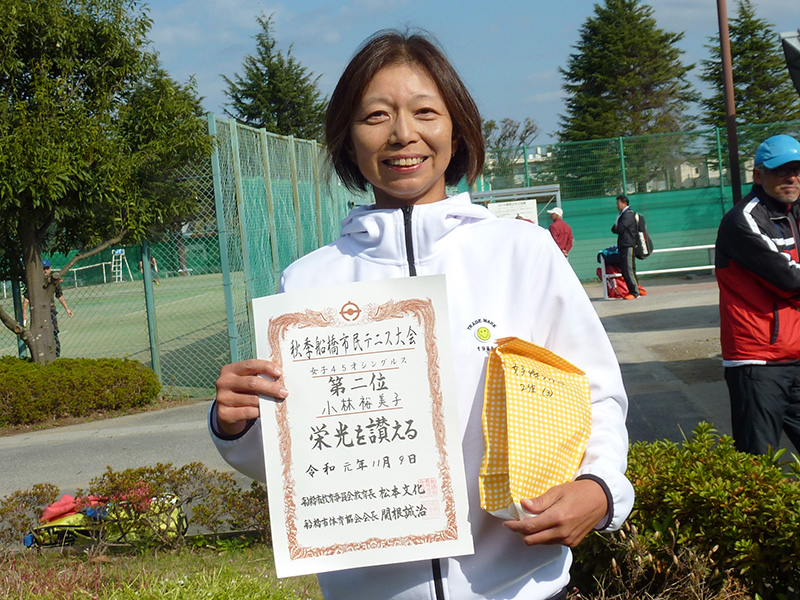 秋季船橋市民テニス大会
女子45才シングルス
第二位
小林裕美子
栄光を讃える
令和元年11月9日
船橋市教育委員会教育長 松本文化
船橋市体育協会会長 関根誠治
TRADE MARK